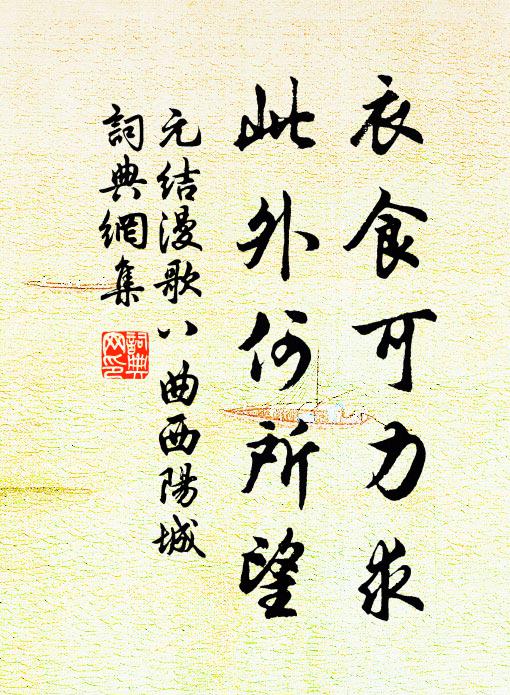 衣食可力求
此外何所望
元结漫歌八曲西陽城
詞典網集
詞典
网印